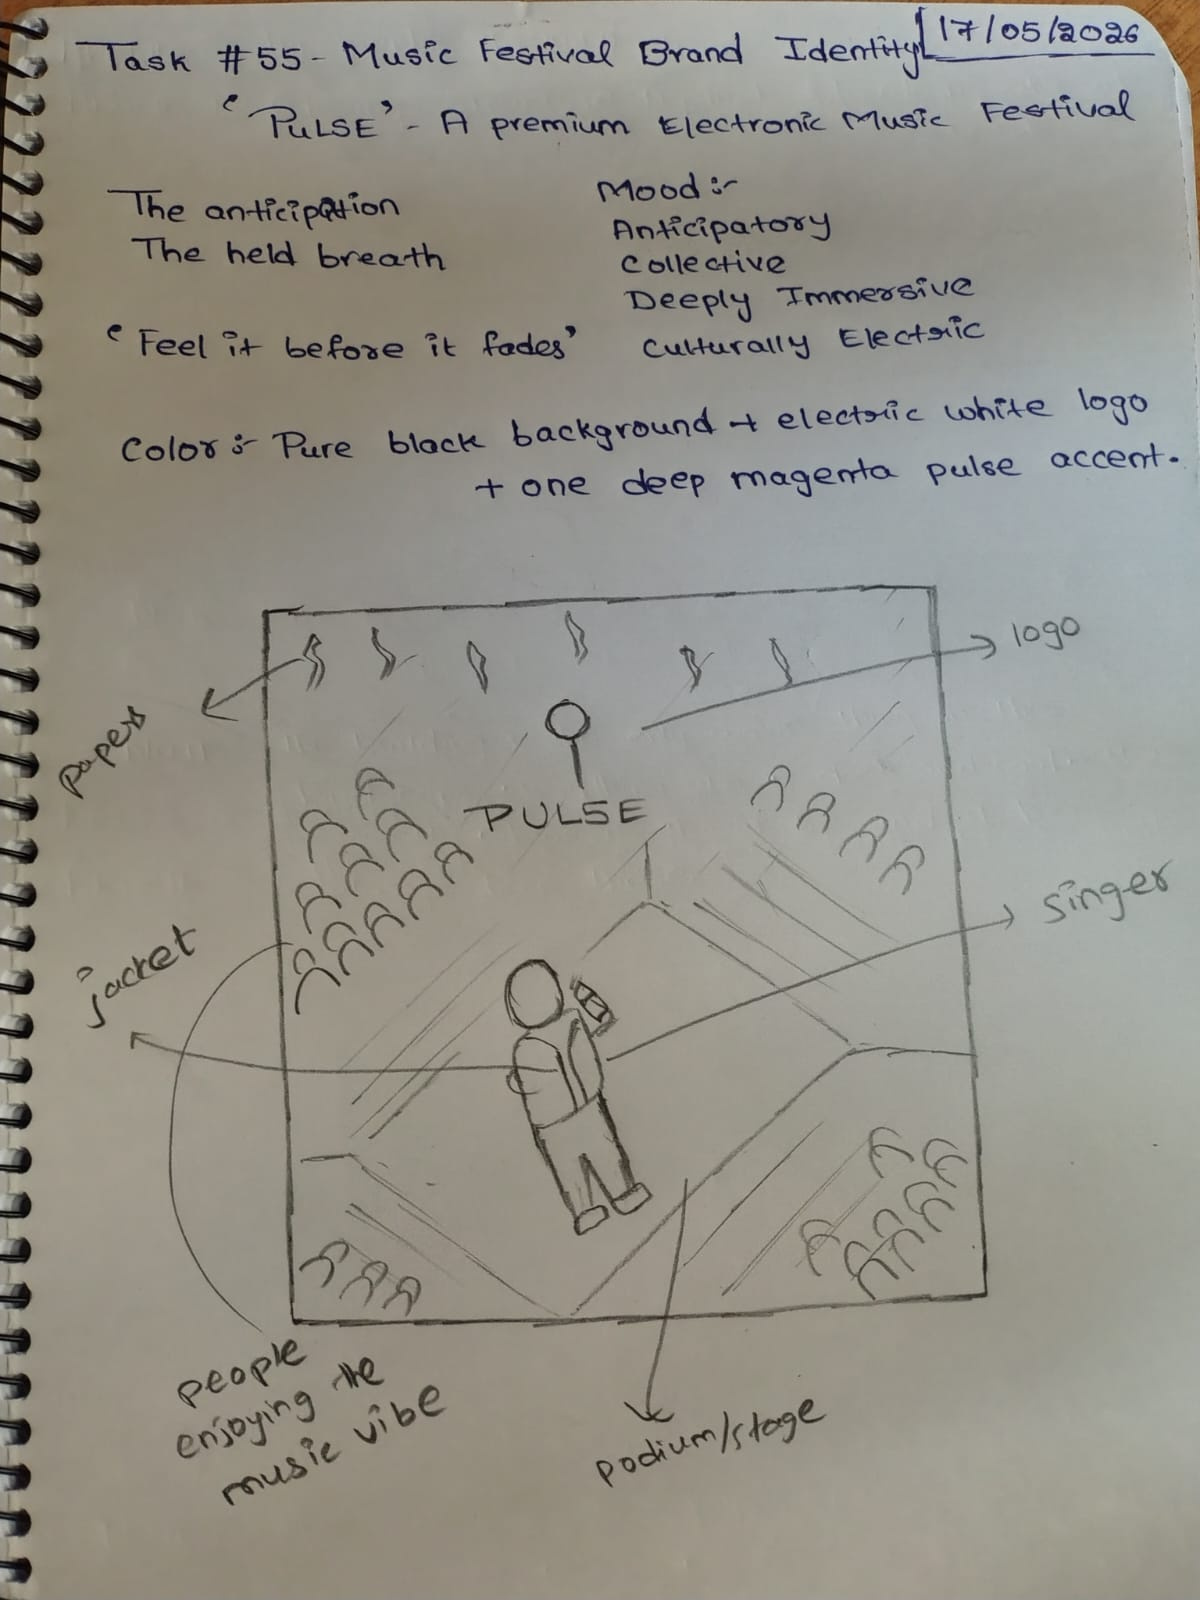 Task #55 - Music Festival Brand Identity
17/05/2026
'PULSE' - A premium Electronic Music Festival
The anticipation
The held breath
'Feel it before it fades'
Mood :-
Anticipatory
Collective
Deeply Immersive
Culturally Electric
Color :- Pure black background + electric white logo
+ one deep magenta pulse accent.
logo
papers
PULSE
singer
jacket
people
enjoying the
music vibe
podium/stage